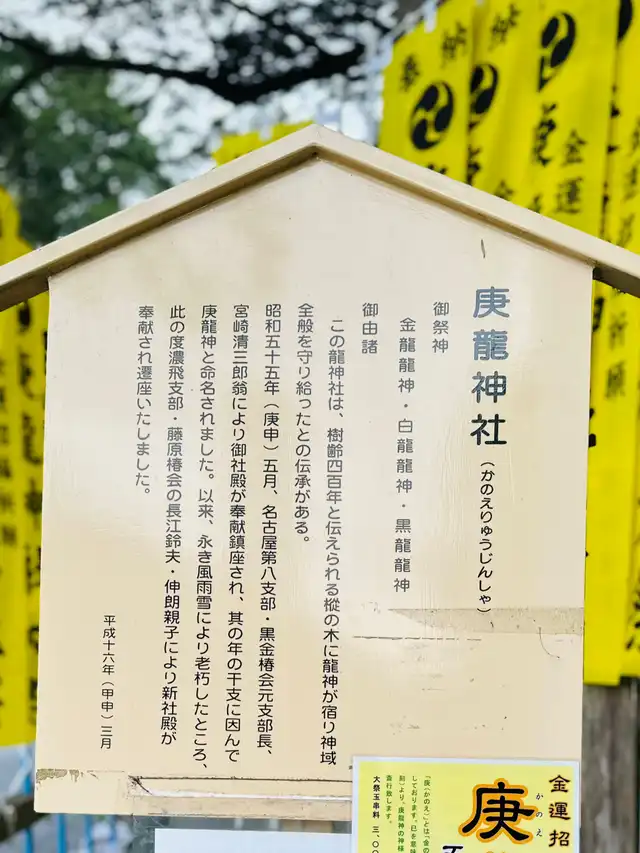 庚龍神社（かのえりゅうじんしゃ）
御祭神
金龍龍神・白龍龍神・黒龍龍神
御由諸
この龍神社は、樹齢四百年と伝えられる樅の木に龍神が宿り神域
全般を守り給ったとの伝承がある。
昭和五十五年（庚申）五月、名古屋第八支部・黒金椿会元支部長、
宮崎清三郎翁により御社殿が奉献鎮座され、其の年の干支に因んで
庚龍神と命名されました。以来、永き風雨雪により老朽したところ、
此の度濃飛支部・藤原椿会の長江鈴夫・伸朗親子により新社殿が
奉献され遷座いたしました。
平成十六年（甲申）三月
金運招
庚
かのえ
「庚（かのえ）」とは「金の
しております。巳を意味
刻）より、庚龍神の神様
斎行致します。
大祭玉串料 三、〇〇
奉
金運
祈願